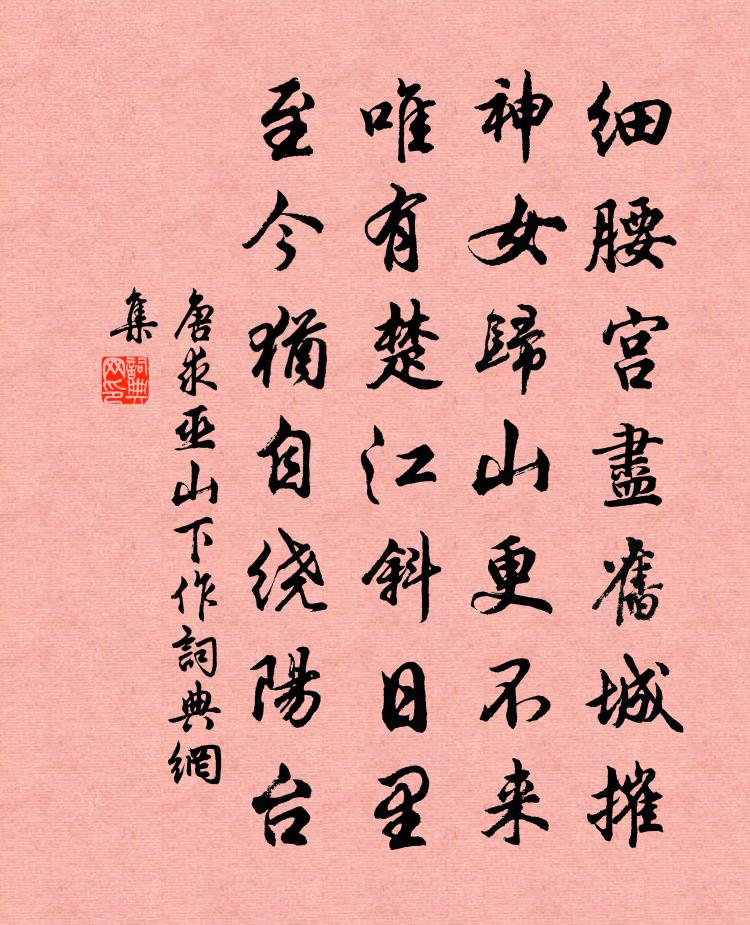 细腰宫盡舊城摧
神女歸山更不来
唯有楚江斜日里
至今猶自绕陽台
唐求巫山下作詞典網
集
詞典
网印